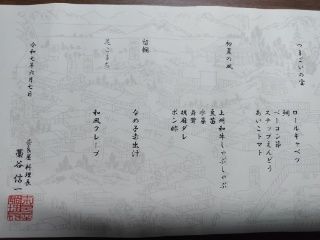 つまごいの宝
ロールキャベツ
鯛
ベーコン茸
スナップえんどう
あいこトマト
初夏の風
上州和牛しゃぶしゃぶ
豆苗
水菜
舞茸
胡麻ダレ
ポン酢
留椀
なめ子赤出汁
花ごよみ
和風クレープ
令和七年六月七日
奈良屋 料理長
信一